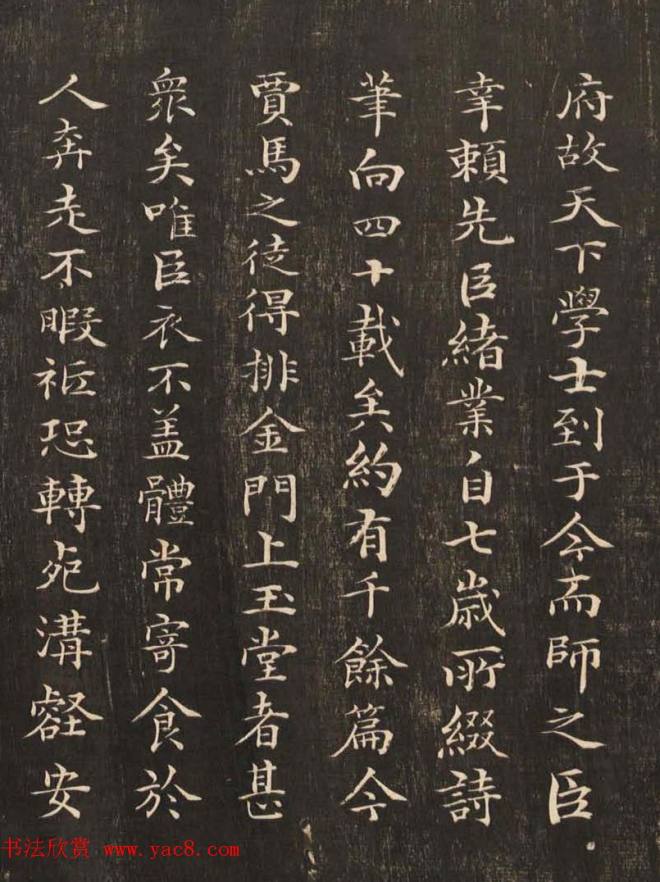 府故天下學士到于今而師之臣
幸賴先臣緒業自七歳所綴詩
筆向四十載矣約有千餘篇今
賈馬之徒得排金門上玉堂者甚
衆矣唯臣衣不盖體常寄食於
人奔走不暇祗恐轉死溝壑安
书法欣赏 www.yac8.com